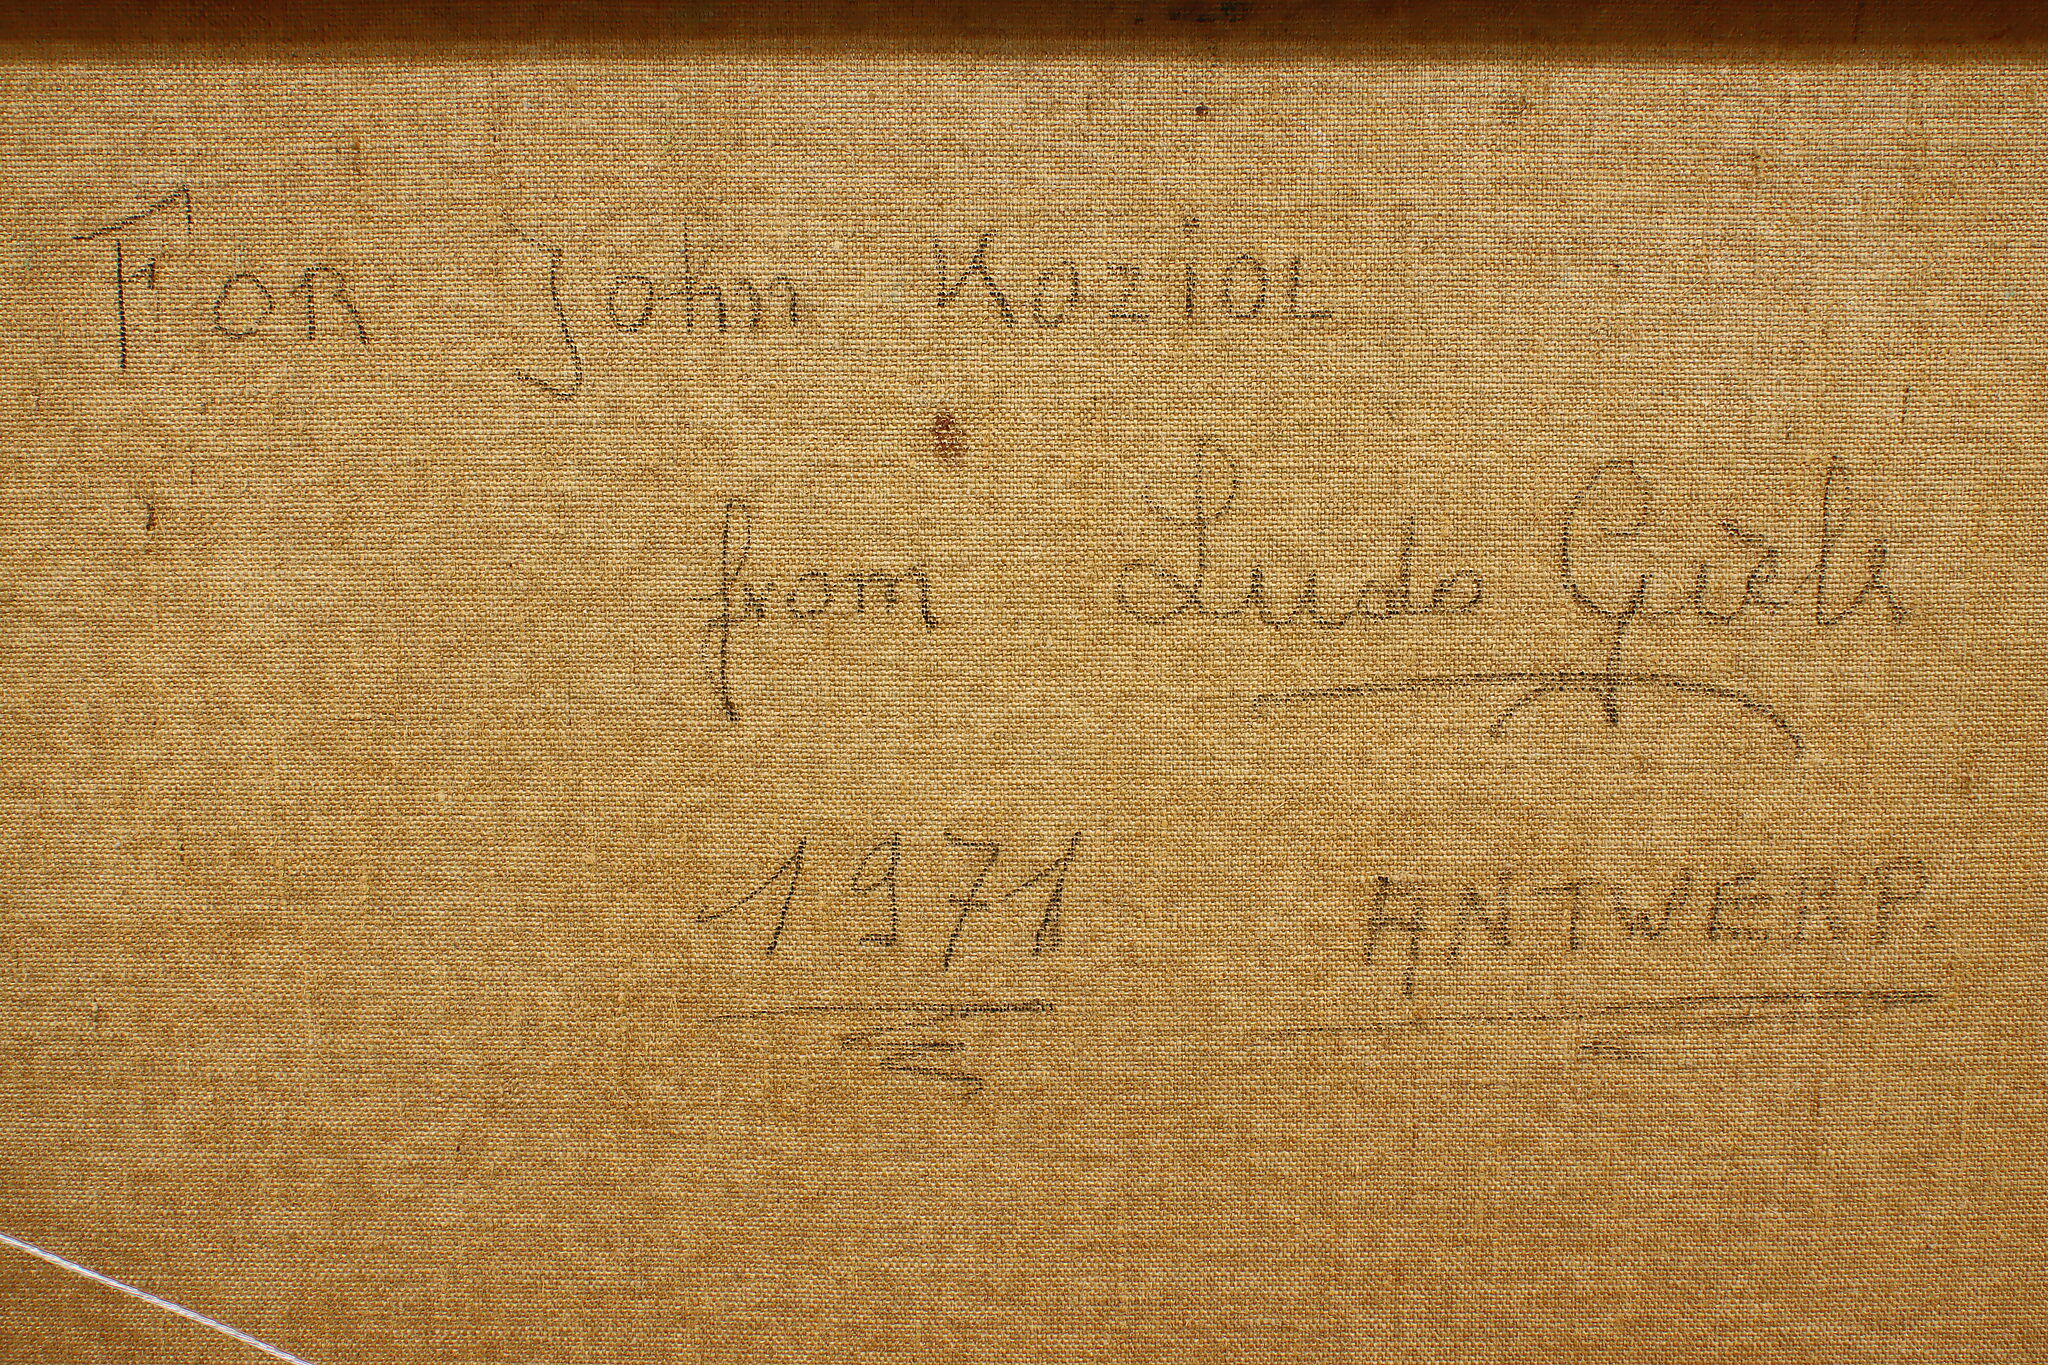 FOR John KOZiOL
from Ludo Giels
1971 ANTWERP.